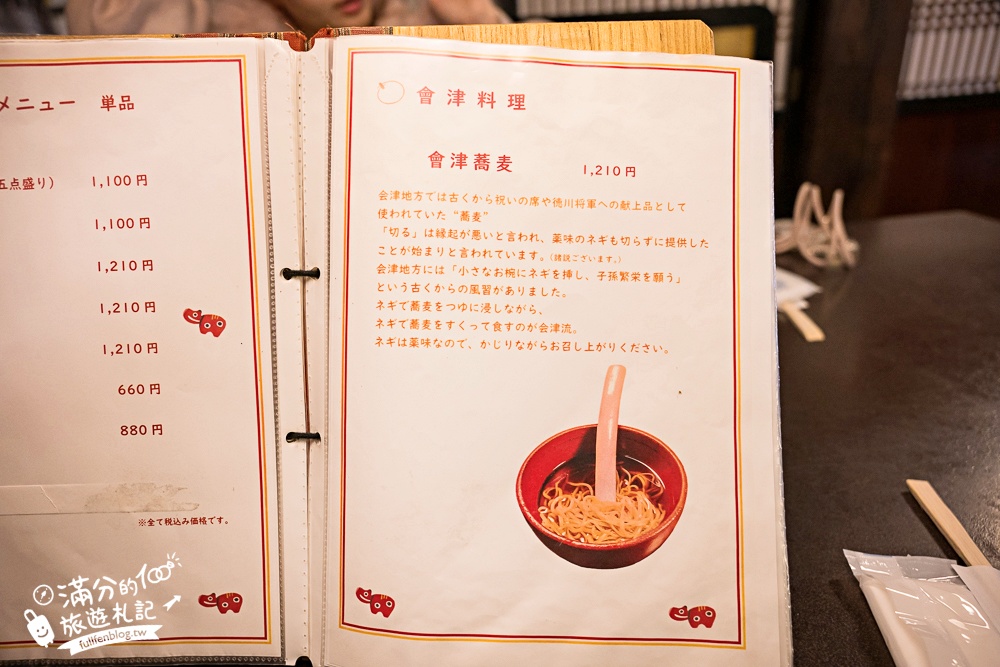 メニュー 単品
五点盛り） 1,100 円
1,100 円
1,210 円
1,210 円
1,210 円
660 円
880 円
※全て税込み価格です。
會津料理
會津蕎麦 1,210 円
会津地方では古くから祝いの席や徳川将軍への献上品として
使われていた“蕎麦”
「切る」は縁起が悪いと言われ、薬味のネギも切らずに提供した
ことが始まりと言われています。（諸説ございます。）
会津地方には「小さなお椀にネギを挿し、子孫繁栄を願う」
という古くからの風習がありました。
ネギで蕎麦をつゆに浸しながら、
ネギで蕎麦をすくって食すのが会津流。
ネギは薬味なので、かじりながらお召し上がりください。
滿分的
旅遊札記
fullfenblog.tw